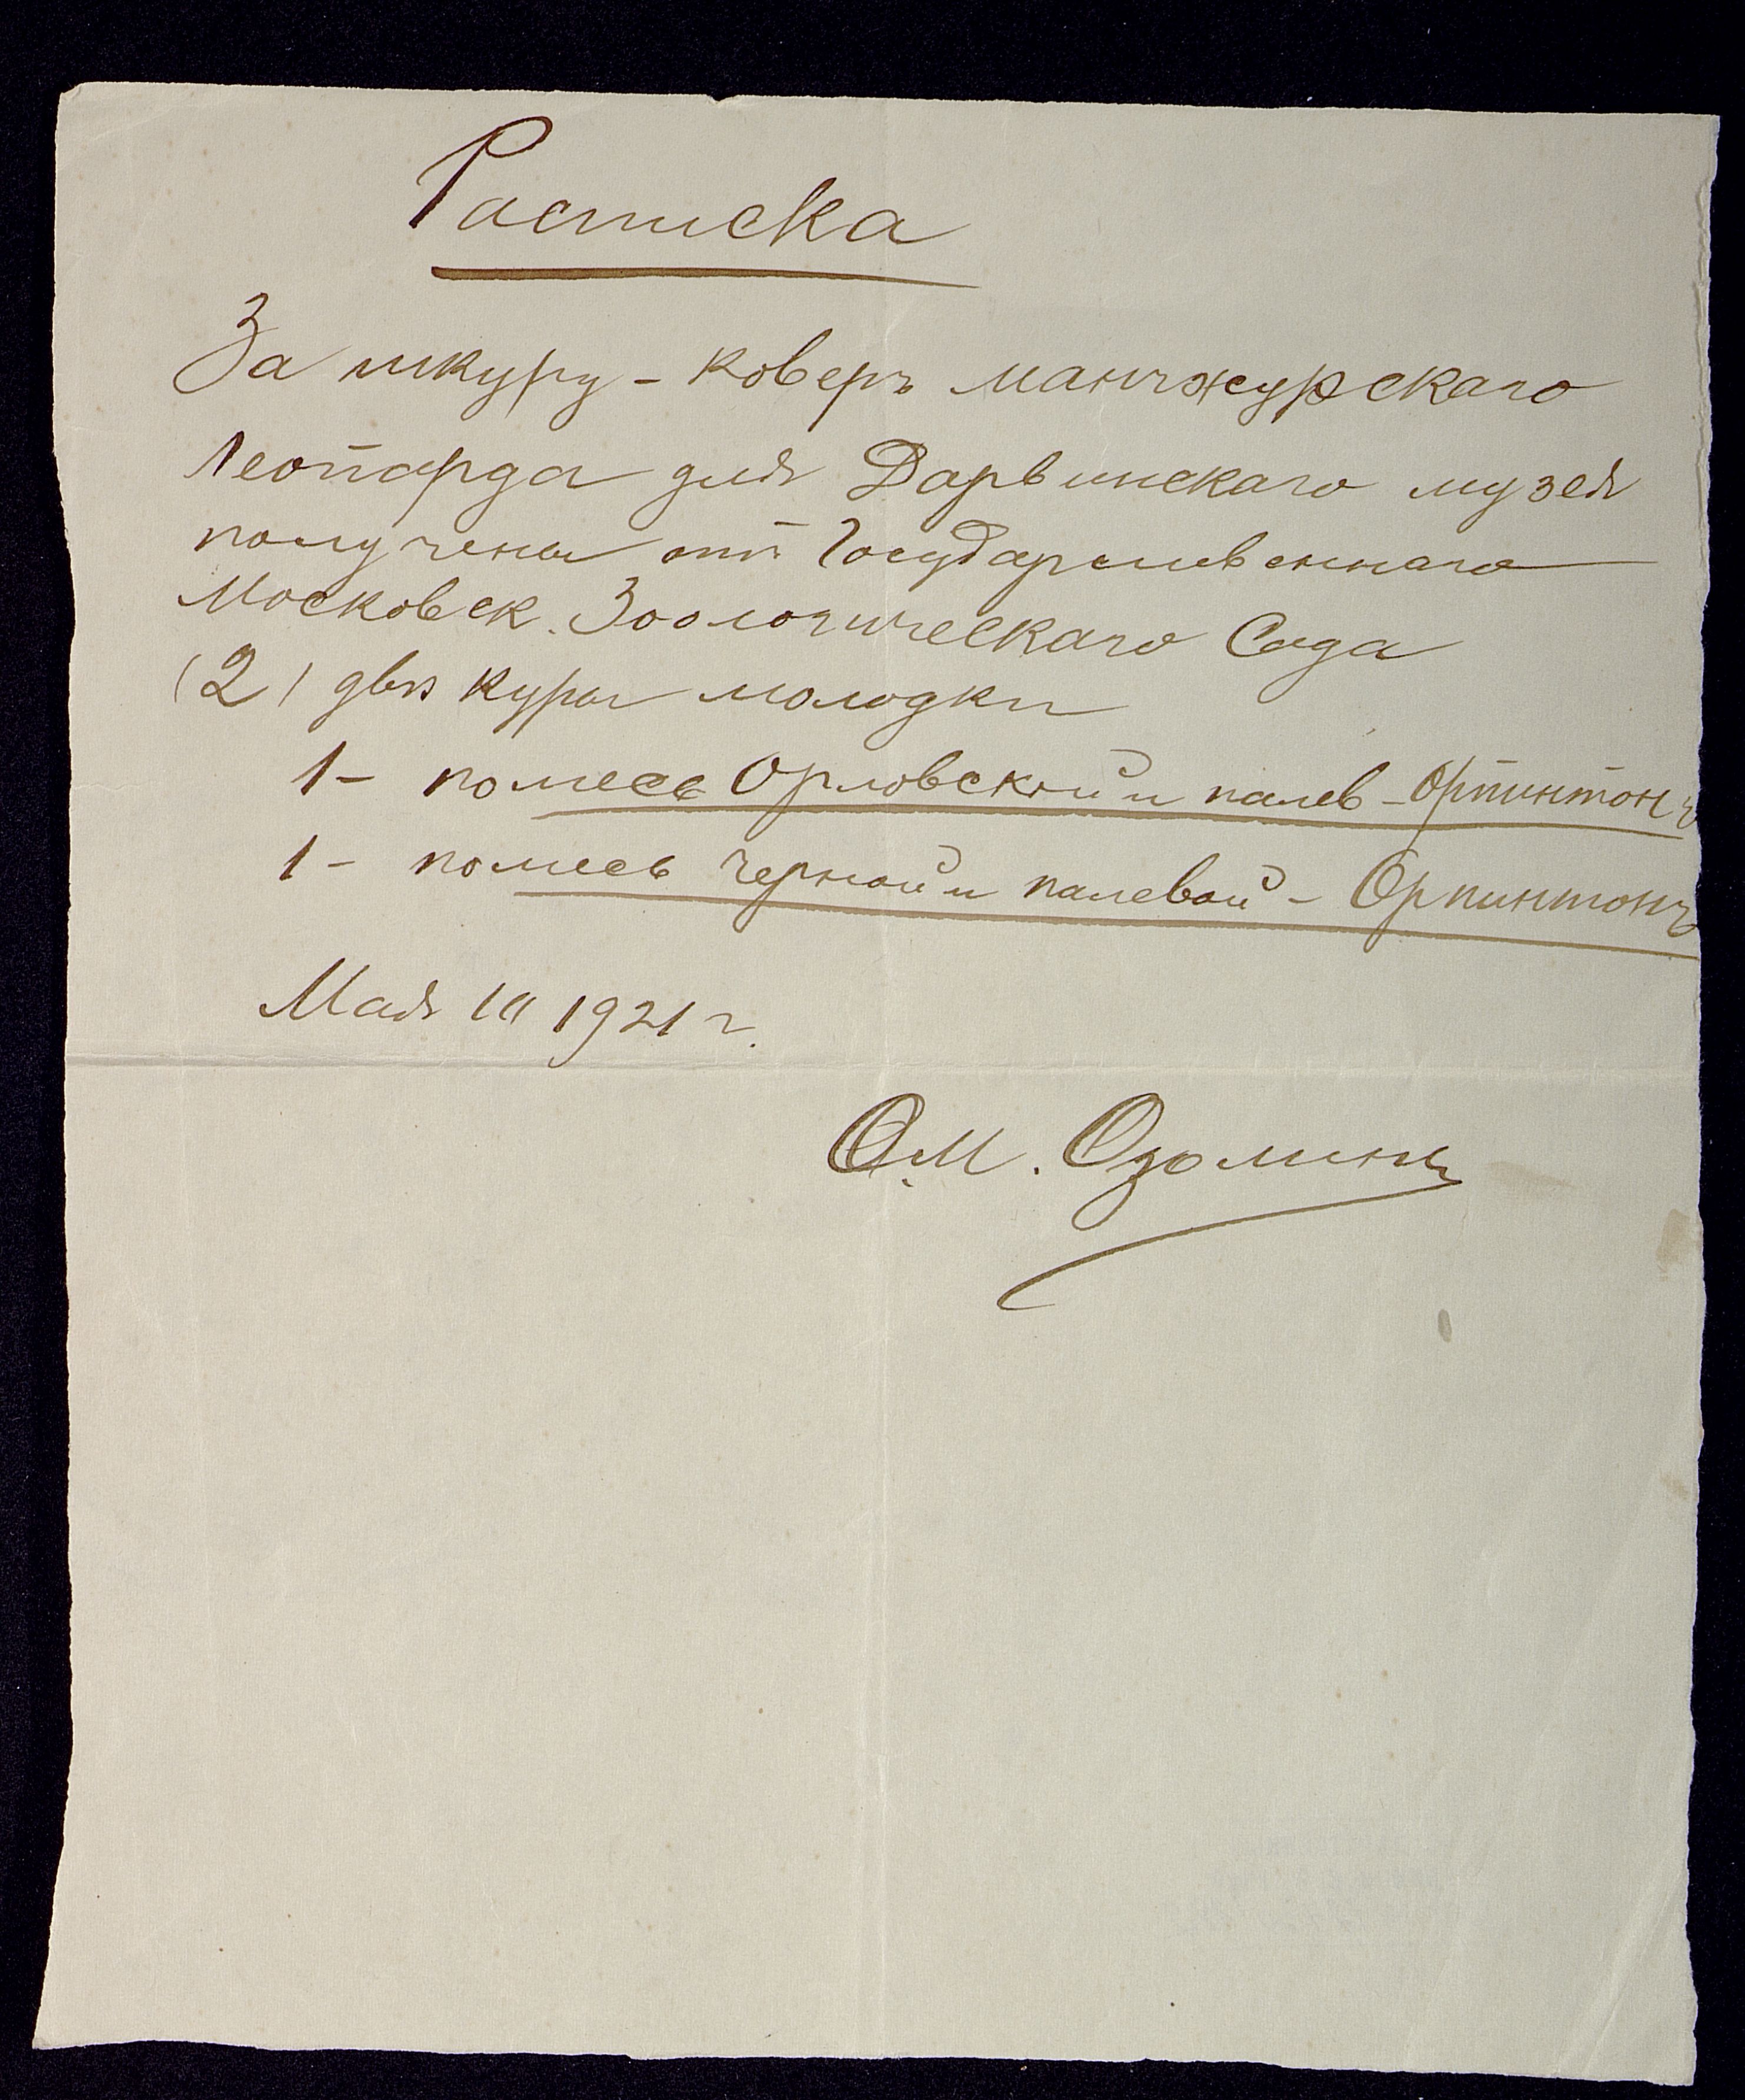 Расписка
За шкуру - коверъ манчжурскаго
леопарда для Дарвинскаго музея
получены отъ Государственнаго
Московск. Зоологическаго Сада
(2) двѣ куры молодки
1 - помесь Орловский и палев - Орпинтонъ
1 - помесь черной и палевой - Орпинтонъ
Мая 1921 г.
О.М. Озолинъ